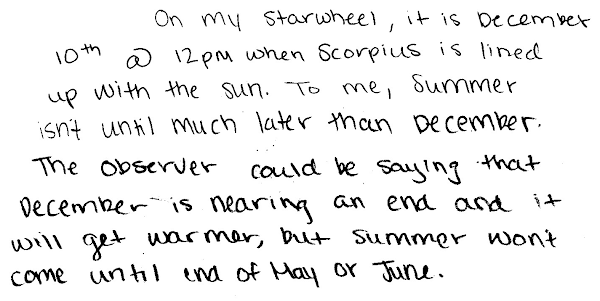 On my starwheel, it is December
10th @ 12pm when Scorpius is lined
up with the sun. To me, Summer
isn't until much later than December.
The observer could be saying that
December is nearing an end and it
will get warmer, but summer won't
come until end of May or June.